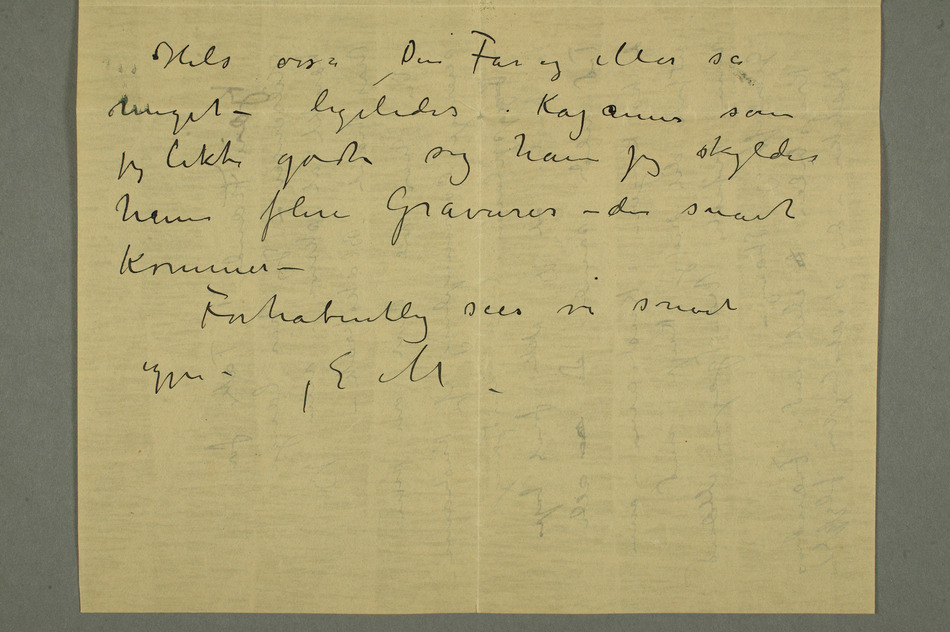 Hils også Din Far og Mor så
meget – ligeledes Kajanus som
jeg likte godt sig ham jeg skylder
ham flere Gravurer – der snart
kommer –
Forhåbentlig sees vi snart
igjen – E M